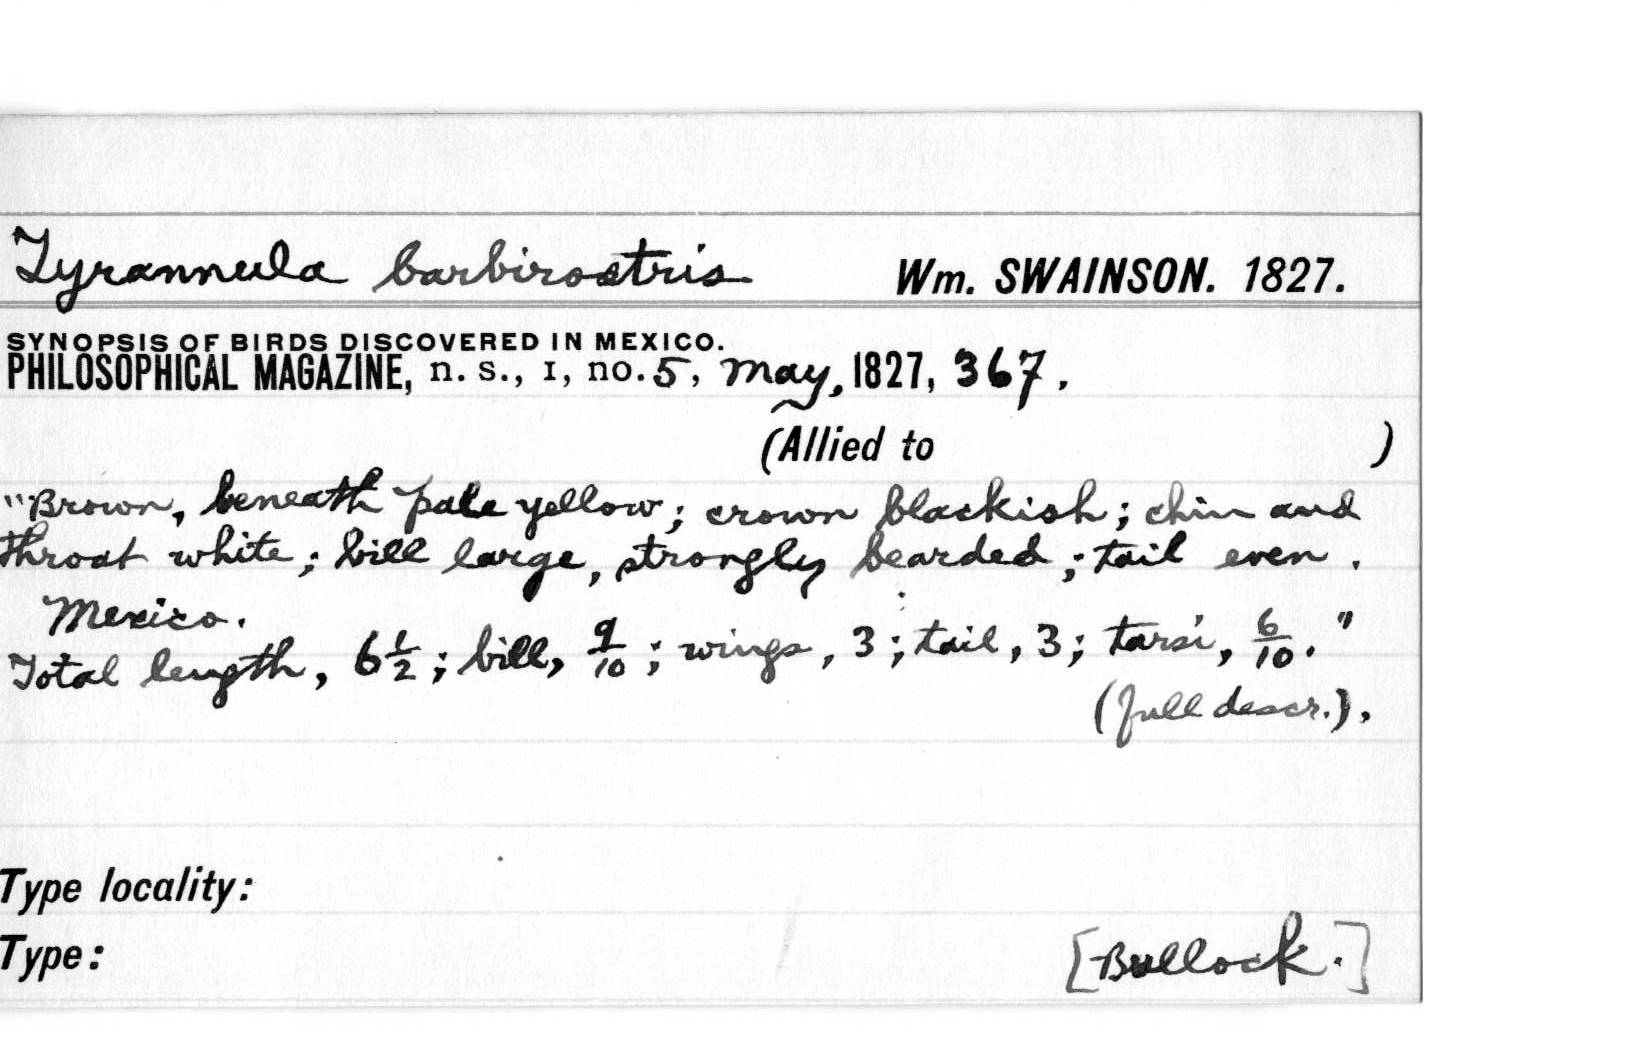 Tyrannula barbirostris Wm. SWAINSON. 1827.
SYNOPSIS OF BIRDS DISCOVERED IN MEXICO.
PHILOSOPHICAL MAGAZINE, n. s., I, no. 5, May, 1827, 367.
(Allied to )
"Brown, beneath pale yellow; crown blackish; chin and
throat white; bill large, strongly bearded; tail even.
Mexico.
Total length, 6 1/2; bill, 9/10; wings, 3; tail, 3; tarsi, 6/10."
(full descr.).
Type locality:
Type: [Bullock.]